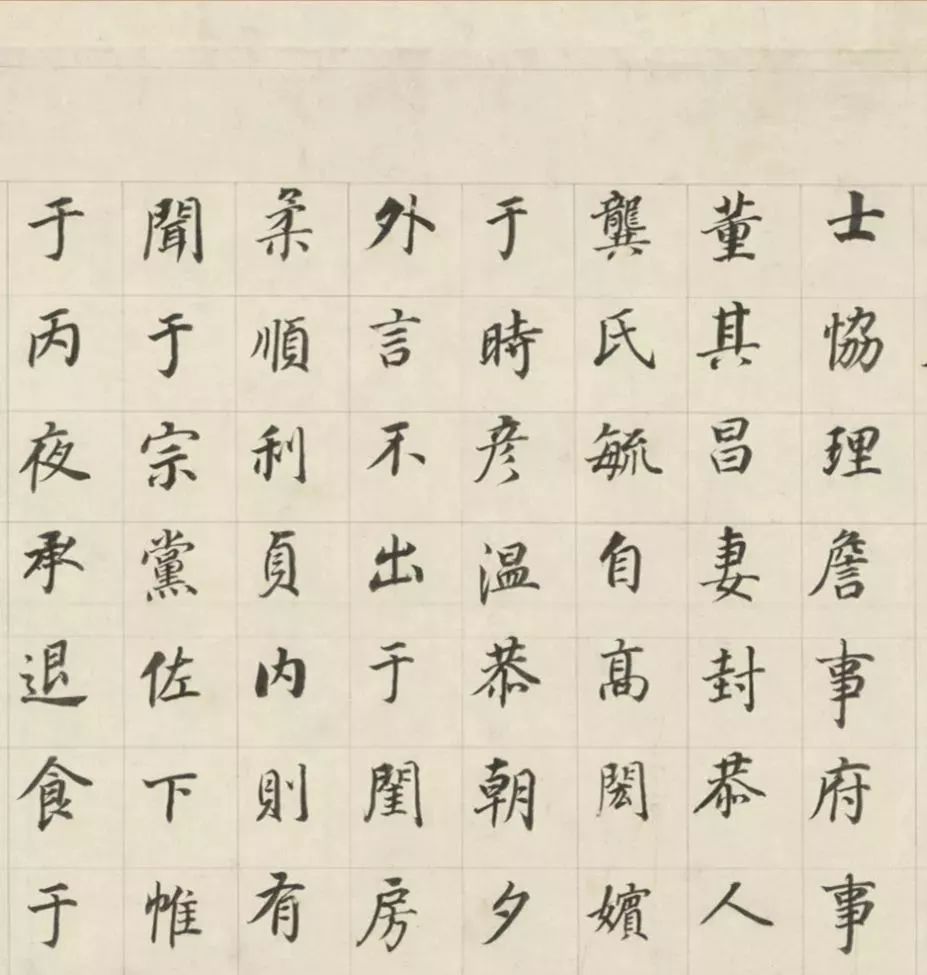 士協理詹事府事
董其昌妻封恭人
龔氏毓自高閎嬪
于時彦溫恭朝夕
外言不出于閨房
柔順利貞内則有
聞于宗黨佐下帷
于丙夜承退食于